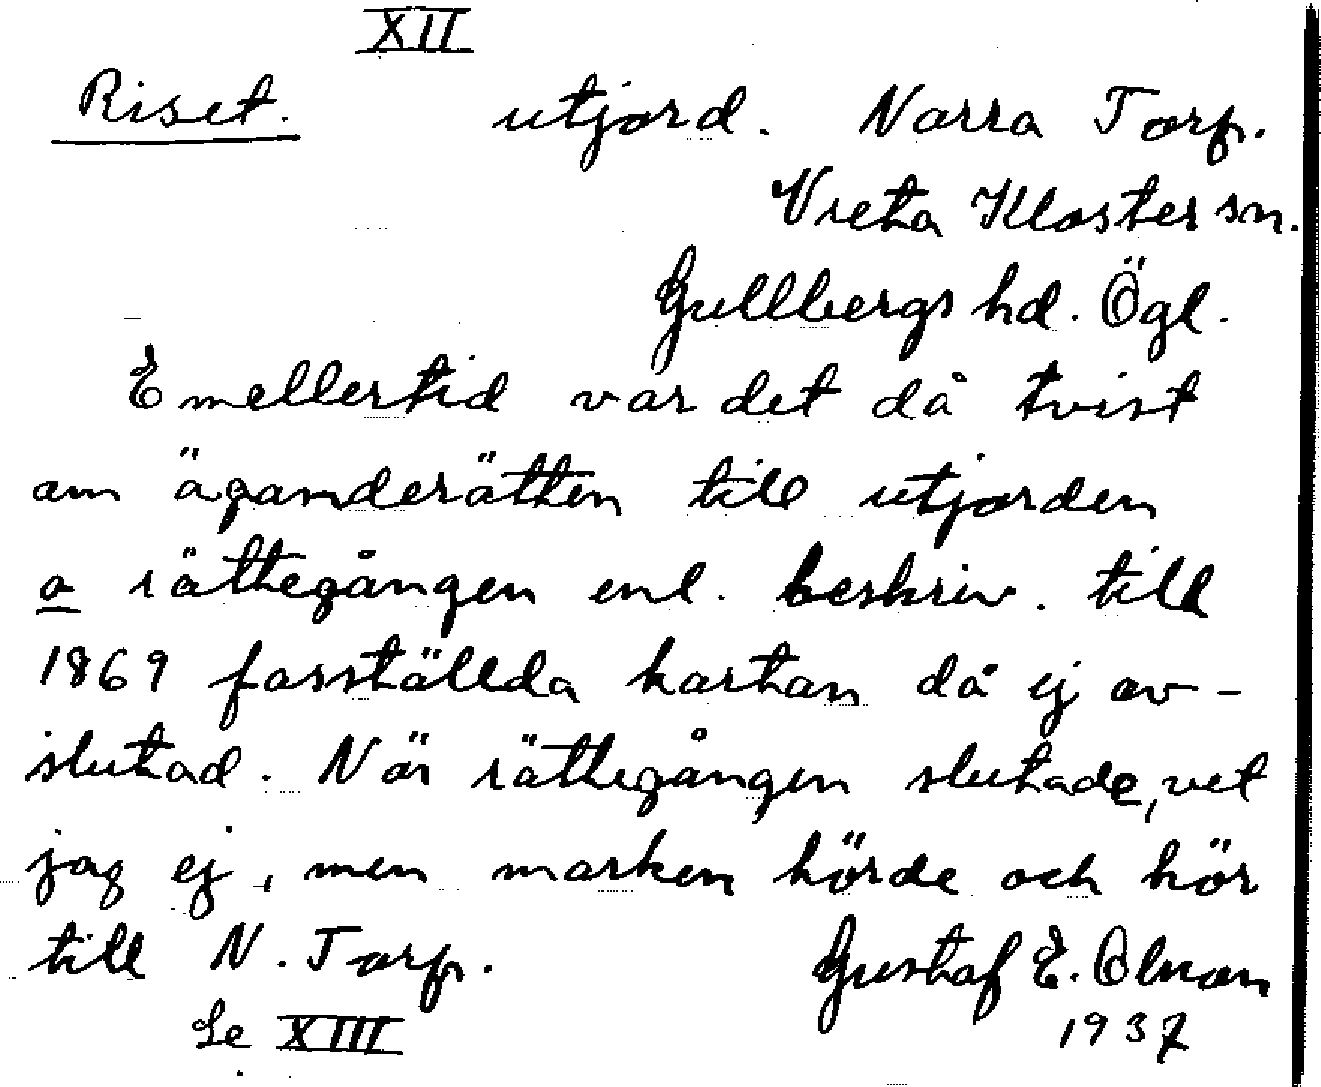 XII
Riset. utjord. Norra Torp.
Vreta Kloster sn.
Gullbergs hd. Ögl.
Emellertid var det då tvist
om äganderätten till utjorden
o rättegången enl. beskriv. till
1869 fasställda kartan då ej av-
slutad. När rättegången slutade, vet
jag ej, men marken hörde och hör
till N. Torp. Gustaf E. Olson
Se XIII 1937